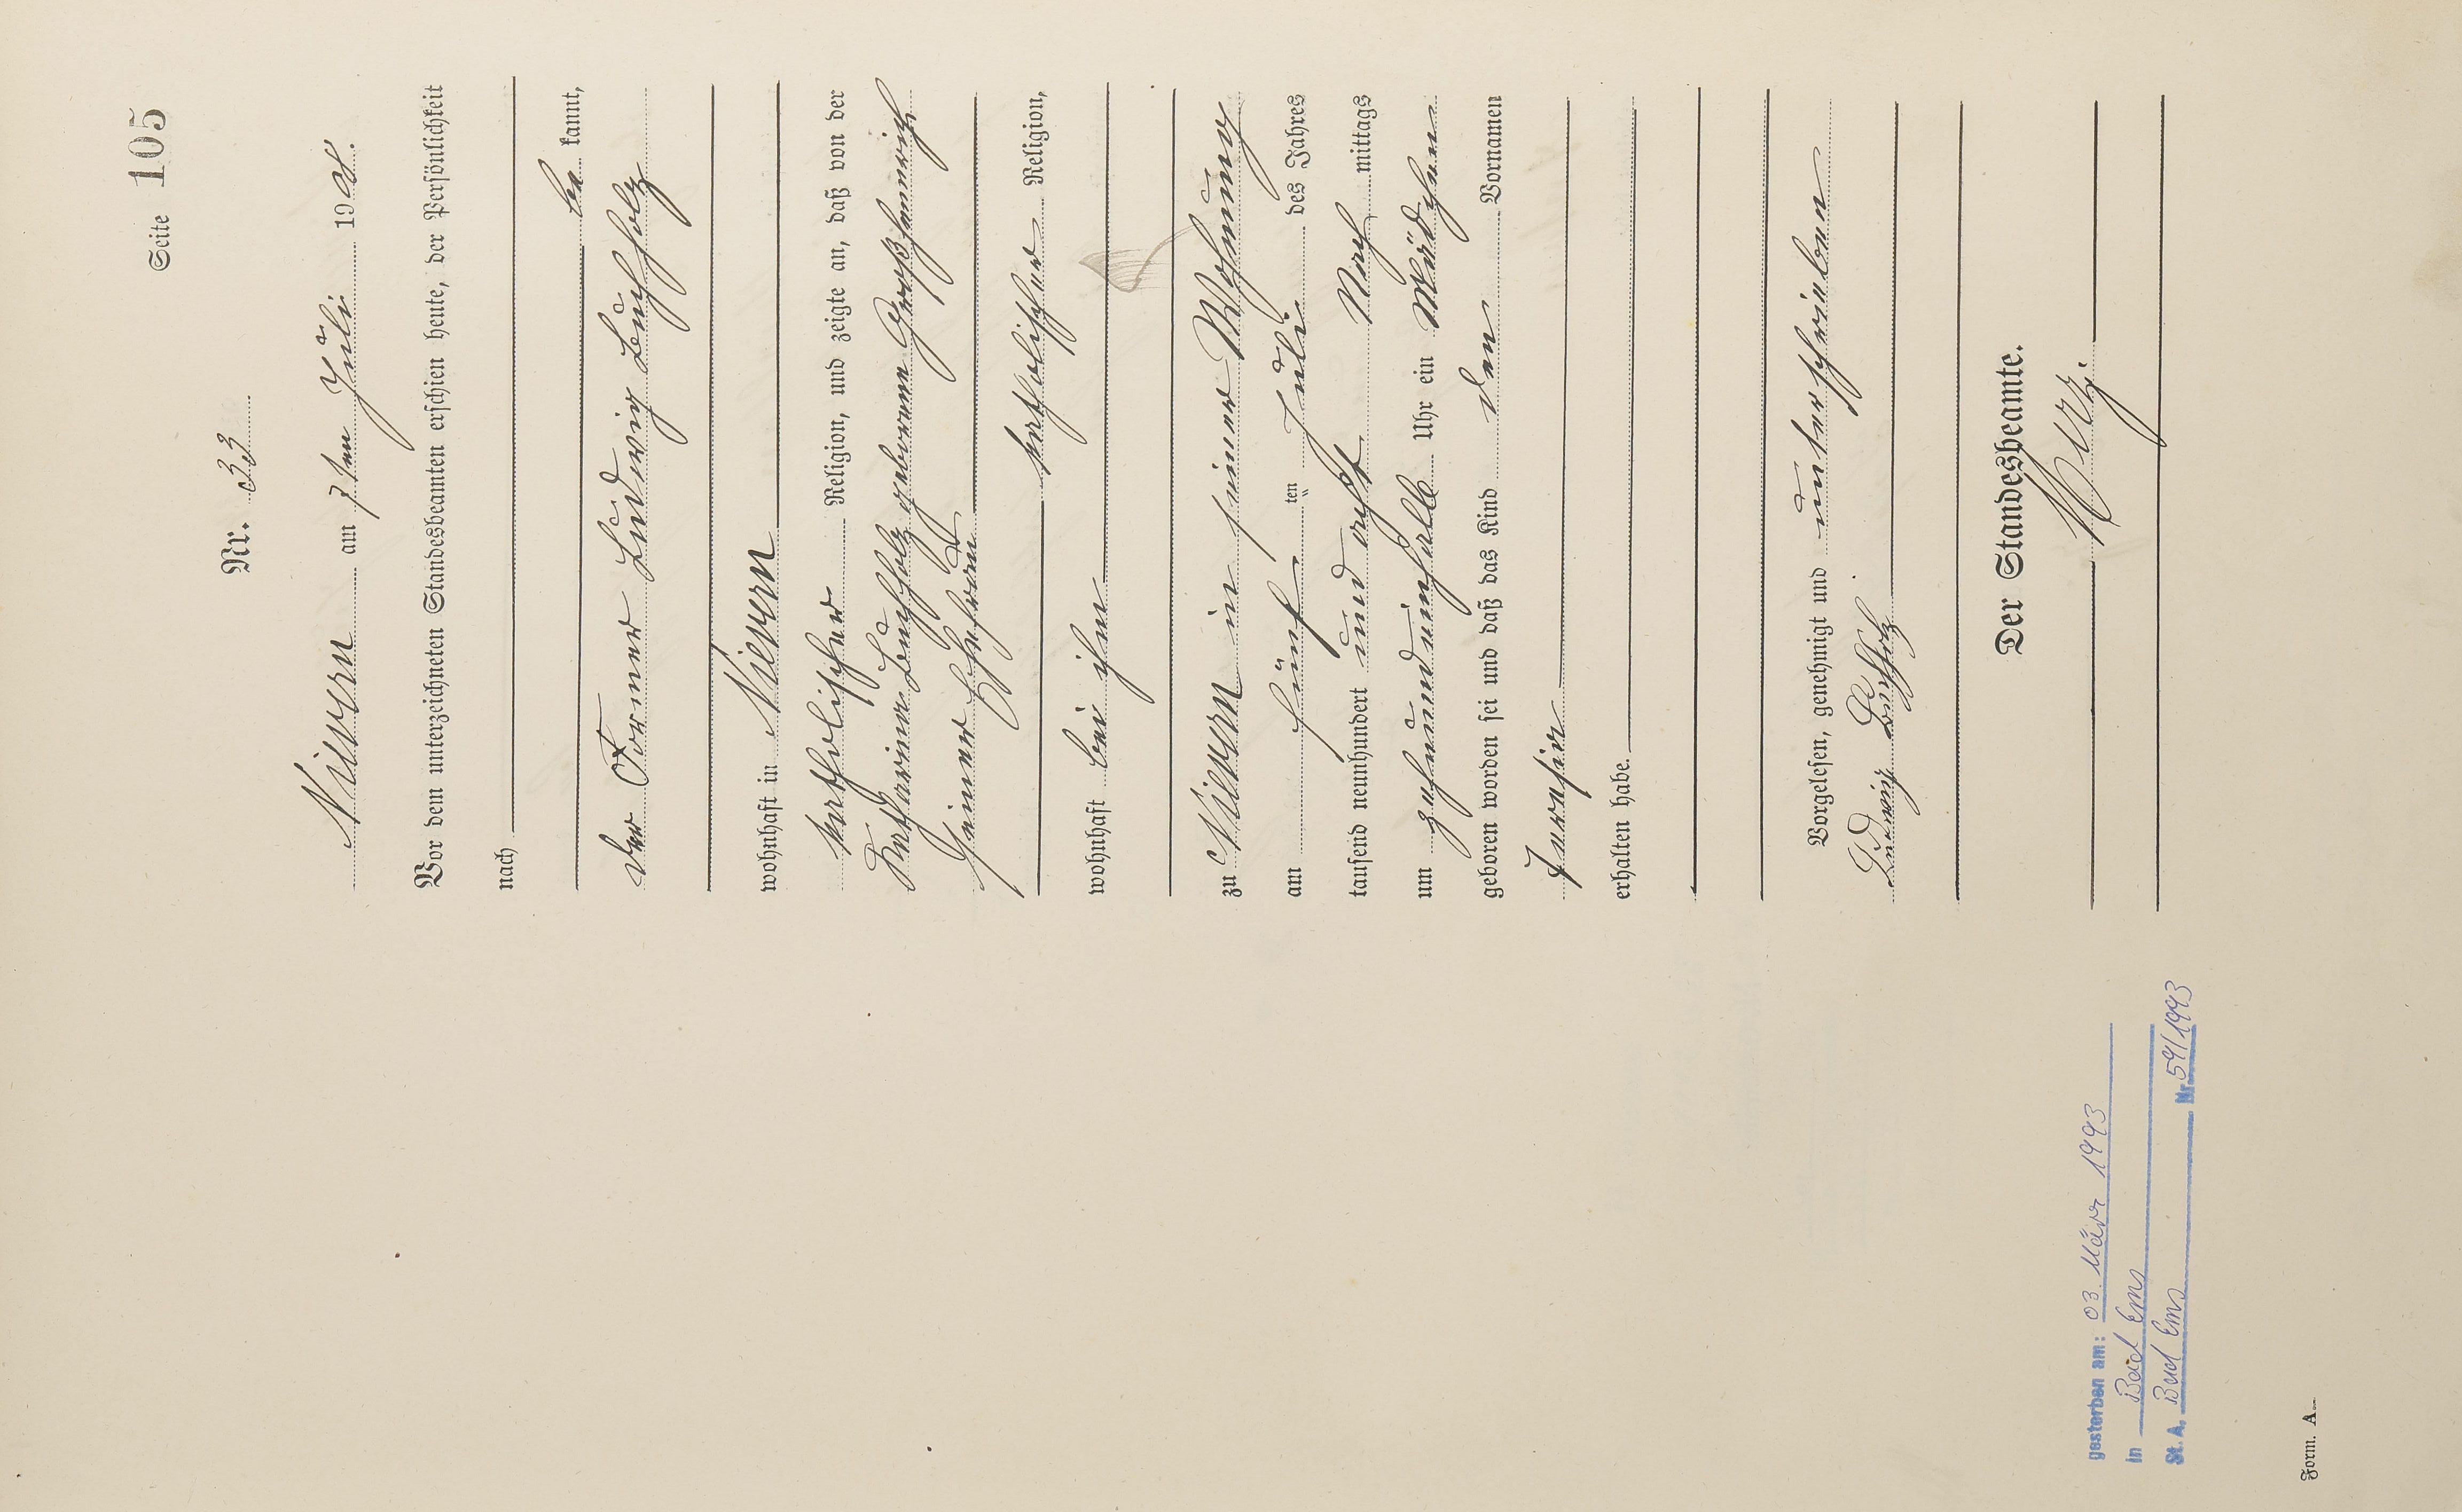 Seite 105
Nr. 33
Nievern am 7ten Juli 1908.
Vor dem unterzeichneten Standesbeamten erschien heute, der Persönlichkeit
nach
be kannt,
der Former Ludwig Buchholz
wohnhaft in Nievern
katholischer Religion, und zeigte an, daß von der
Katharina Buchholz geborene
seiner Ehefrau
katholischer Religion,
wohnhaft bei ihm
zu Nievern in seiner Wohnung
am fünf ten Juli des Jahres
tausend neunhundert und acht Nach mittags
um zehnundeinhalb Uhr ein Mädchen
geboren worden sei und daß das Kind den Vornamen
erhalten habe.
Vorgelesen, genehmigt und unterschrieben
Ludwig Buchholz
Der Standesbeamte.
gestorben am: 03. März 1993
in Bad Ems
St. A. Bad Ems Nr. 59/1993
Form. A.